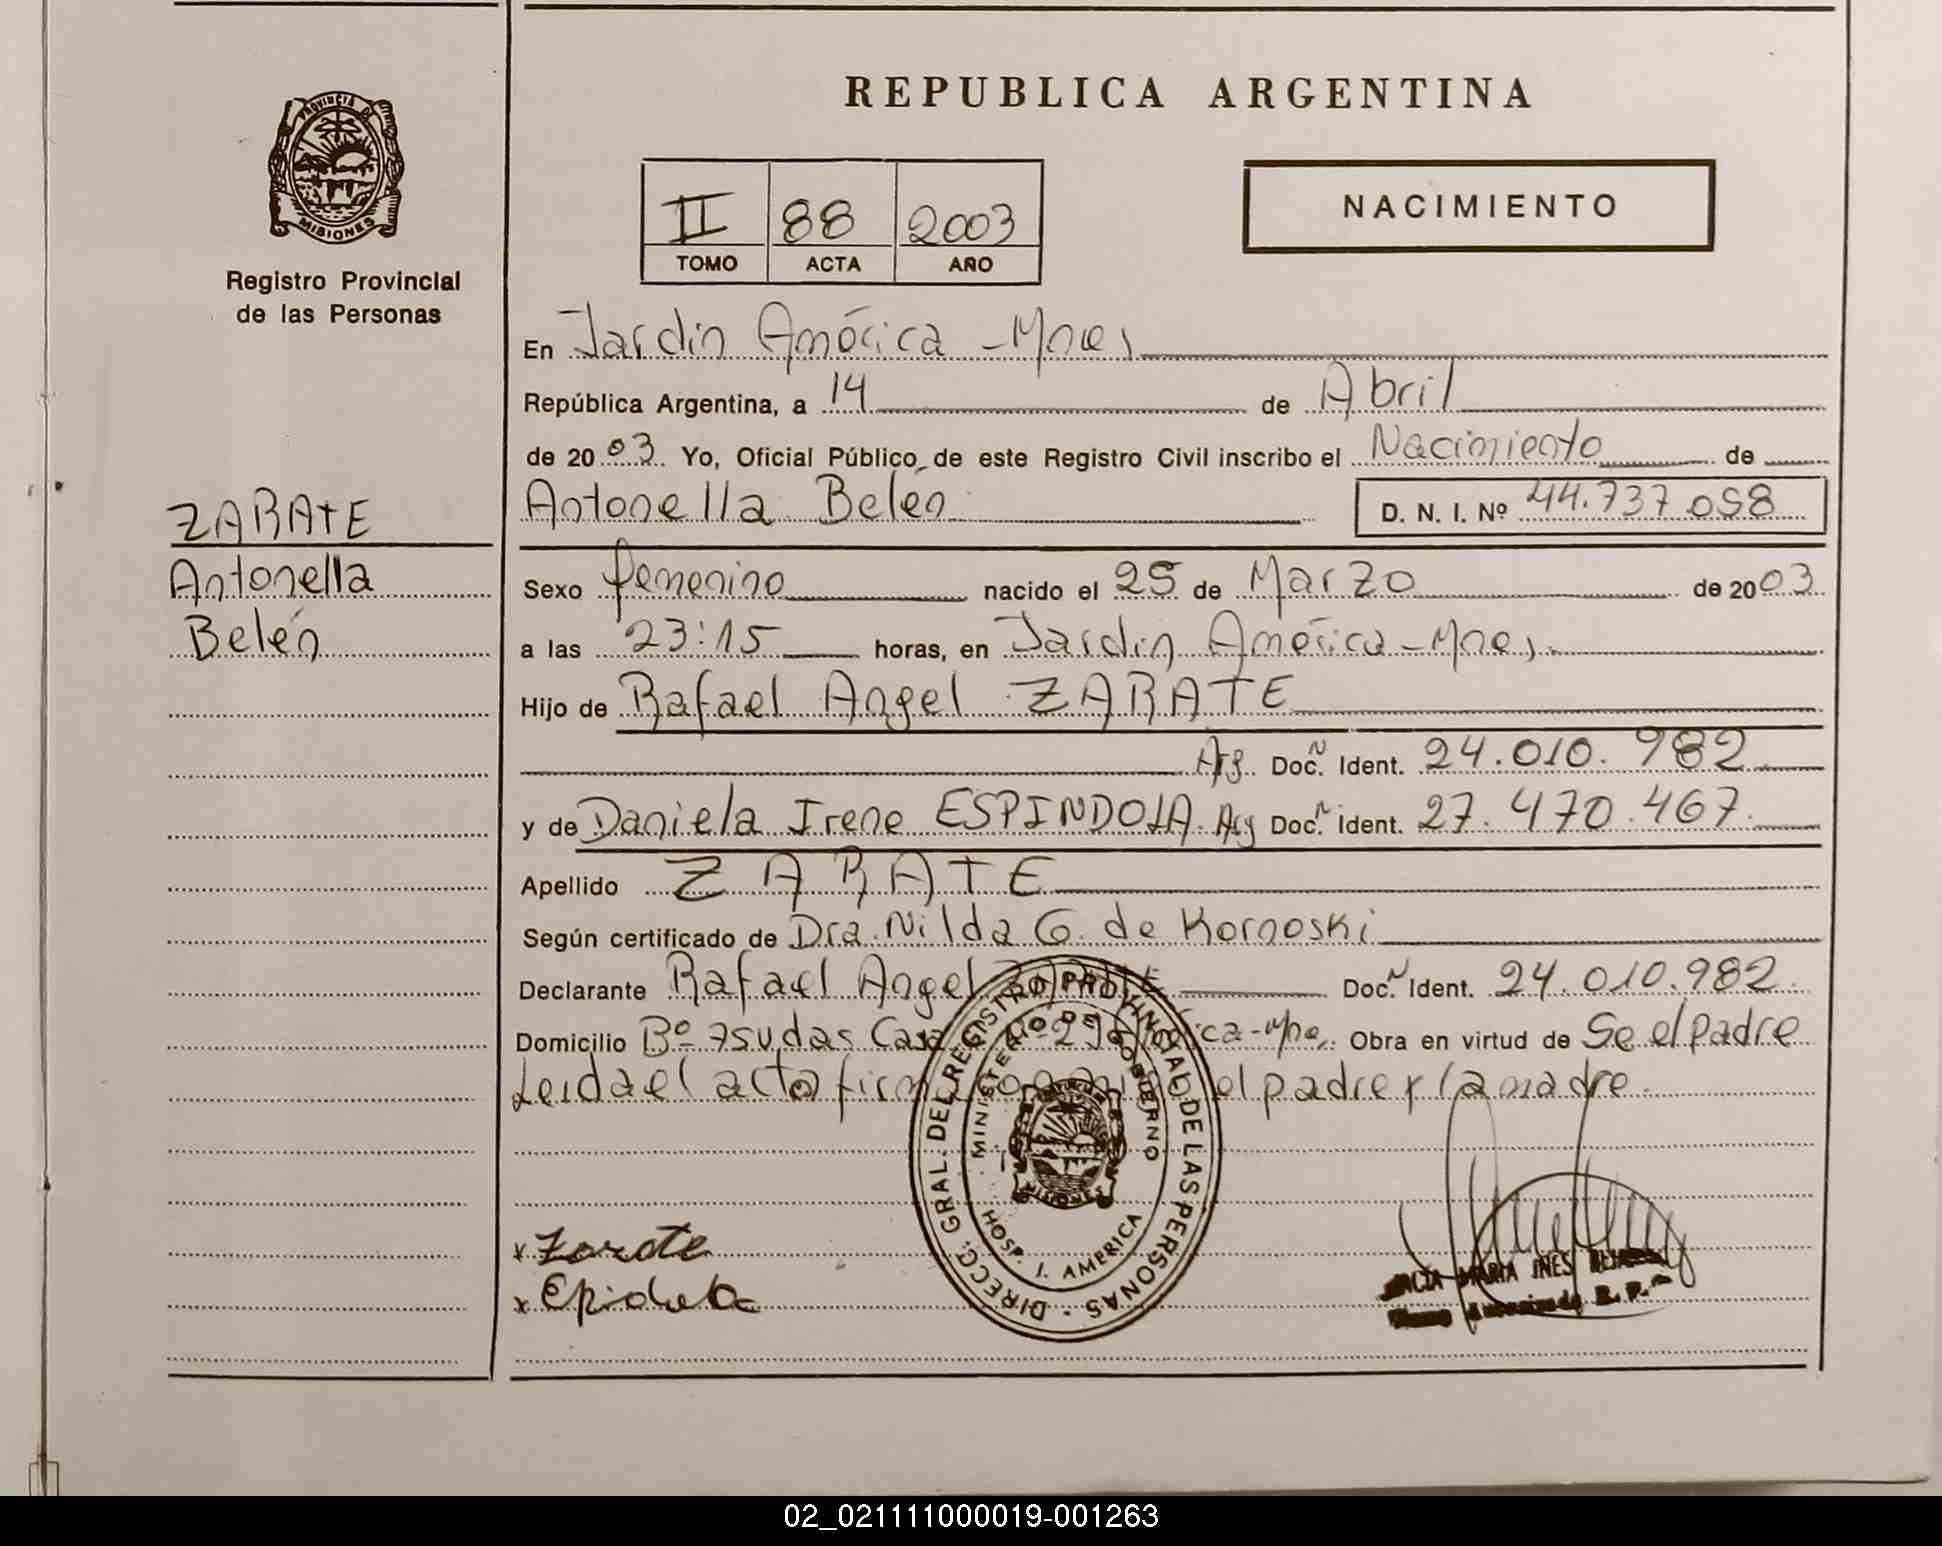 REPUBLICA ARGENTINA
PROVINCIA DE
MISIONES
Registro Provincial
de las Personas
II 88 2003
TOMO ACTA AÑO
NACIMIENTO
En Jardin América - Mnes,
República Argentina, a 14 de Abril
de 2003 Yo, Oficial Público de este Registro Civil inscribo el Nacimiento de
Antonella Belén D. N. I. Nº 44.737.058
ZARATE
Antonella
Belén
Sexo femenino nacido el 25 de Marzo de 2003
a las 23:15 horas, en Jardin América - Mnes,
Hijo de Rafael Angel ZARATE
Arg. Doc. N Ident. 24.010.982
y de Daniela Irene ESPINDOLA. Arg Doc. N Ident. 27.470.467.
Apellido ZARATE
Según certificado de Dra. Nilda G. de Kornoski
Declarante Rafael Angel ZARATE Doc. N Ident. 24.010.982
Domicilio Bº 7 Obra en virtud de Se el padre
Leida el acta el padre y la madre.
DIRECC. GRAL. DEL REGISTRO PROVINCIAL DE LAS PERSONAS
MINISTERIO DE GOBIERNO
MISIONES
HOSP. J. AMERICA
x Zarate
x
MARIA INES
R. P.
02_021111000019-001263